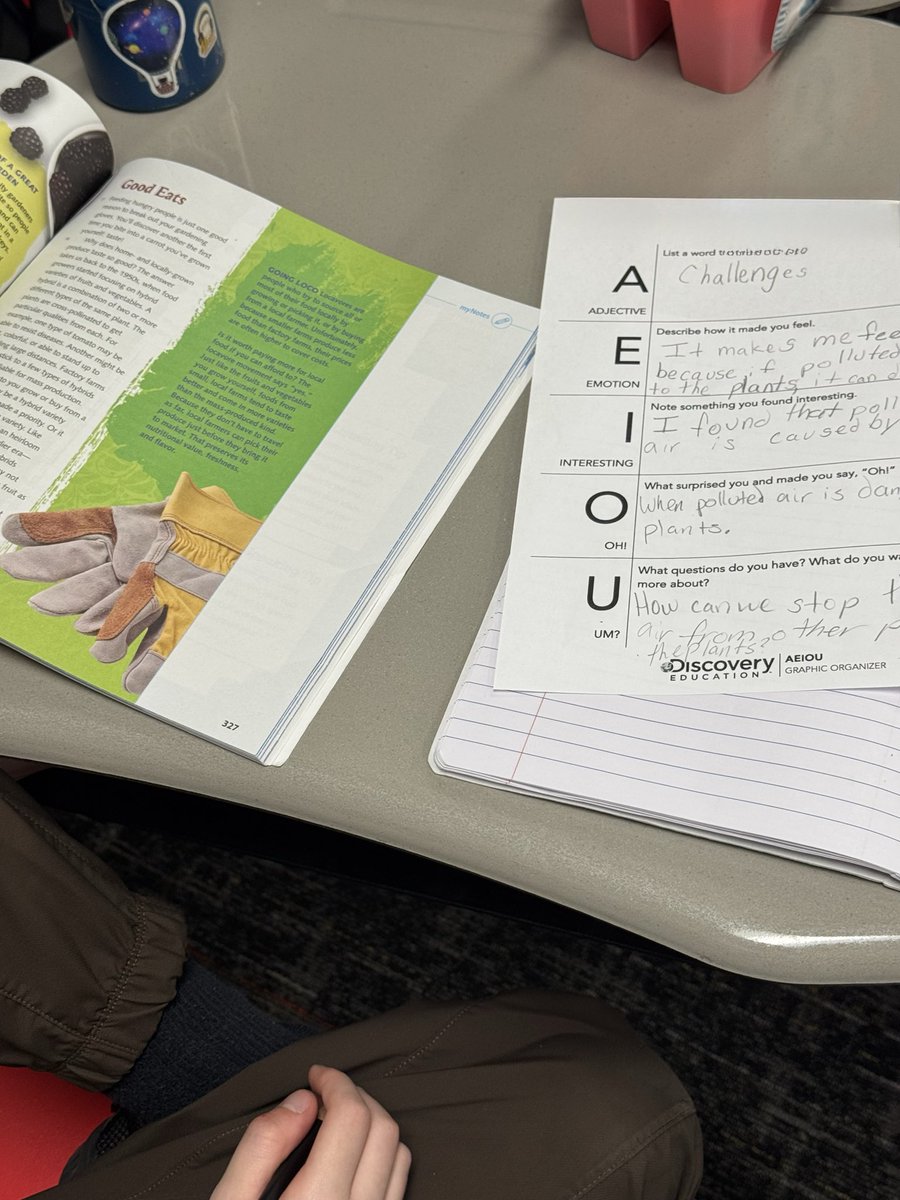 OF A GREAT
EDEN
Good Eats
Feeding hungry people is just one good
reason to break out your gardening
gloves. You'll discover another the first
time you bite into a carrot you've grown
yourself: taste!
Why does home- and locally-grown
produce taste so good? The answer
takes us back to the 1950s, when food
growers started focusing on hybrid
varieties of fruits and vegetables. A
hybrid is a combination of two or more
different types of the same plant. The
plants are cross-pollinated to get
particular qualities from each. For
example, one type of tomato may be
able to resist diseases. Another might be
colorful, or able to stand up to
long distances. Factory farms
stick to a few types of hybrids
for mass production.
to you grow or buy from a
be a hybrid variety
made a priority. Or it
variety. Like
an heirloom
er era—
hybrids
ay not
fruit as
GOING LOCO Locavores are
people who try to source all or
most of their food locally, by
growing or picking it, or by buying
from a local farmer. Unfortunately,
because smaller farms produce less
food than factory farms, their prices
are often higher to cover costs.
Is it worth paying more for local
food if you can afford to? The
locavore movement says "yes."
Just like the fruits and vegetables
you grow yourself, foods from
small, local farms tend to taste
better and come in more varieties
than the mass-produced kind.
Because they don't have to travel
as far, local farmers can pick their
produce just before they bring it
to market. That preserves its
nutritional value, freshness,
and flavor.
myNotes
327
A
ADJECTIVE
List a word
Challenges
E
EMOTION
Describe how it made you feel.
It makes me fee
because if polluted
to the plants it can
I
INTERESTING
Note something you found interesting.
I found that poll
air is caused by
O
OH!
What surprised you and made you say, "Oh!"
When polluted air is dan
plants.
U
UM?
What questions do you have? What do you wa
more about?
How can we stop t
air from other p
the plants?
Discovery
EDUCATION
AEIOU
GRAPHIC ORGANIZER